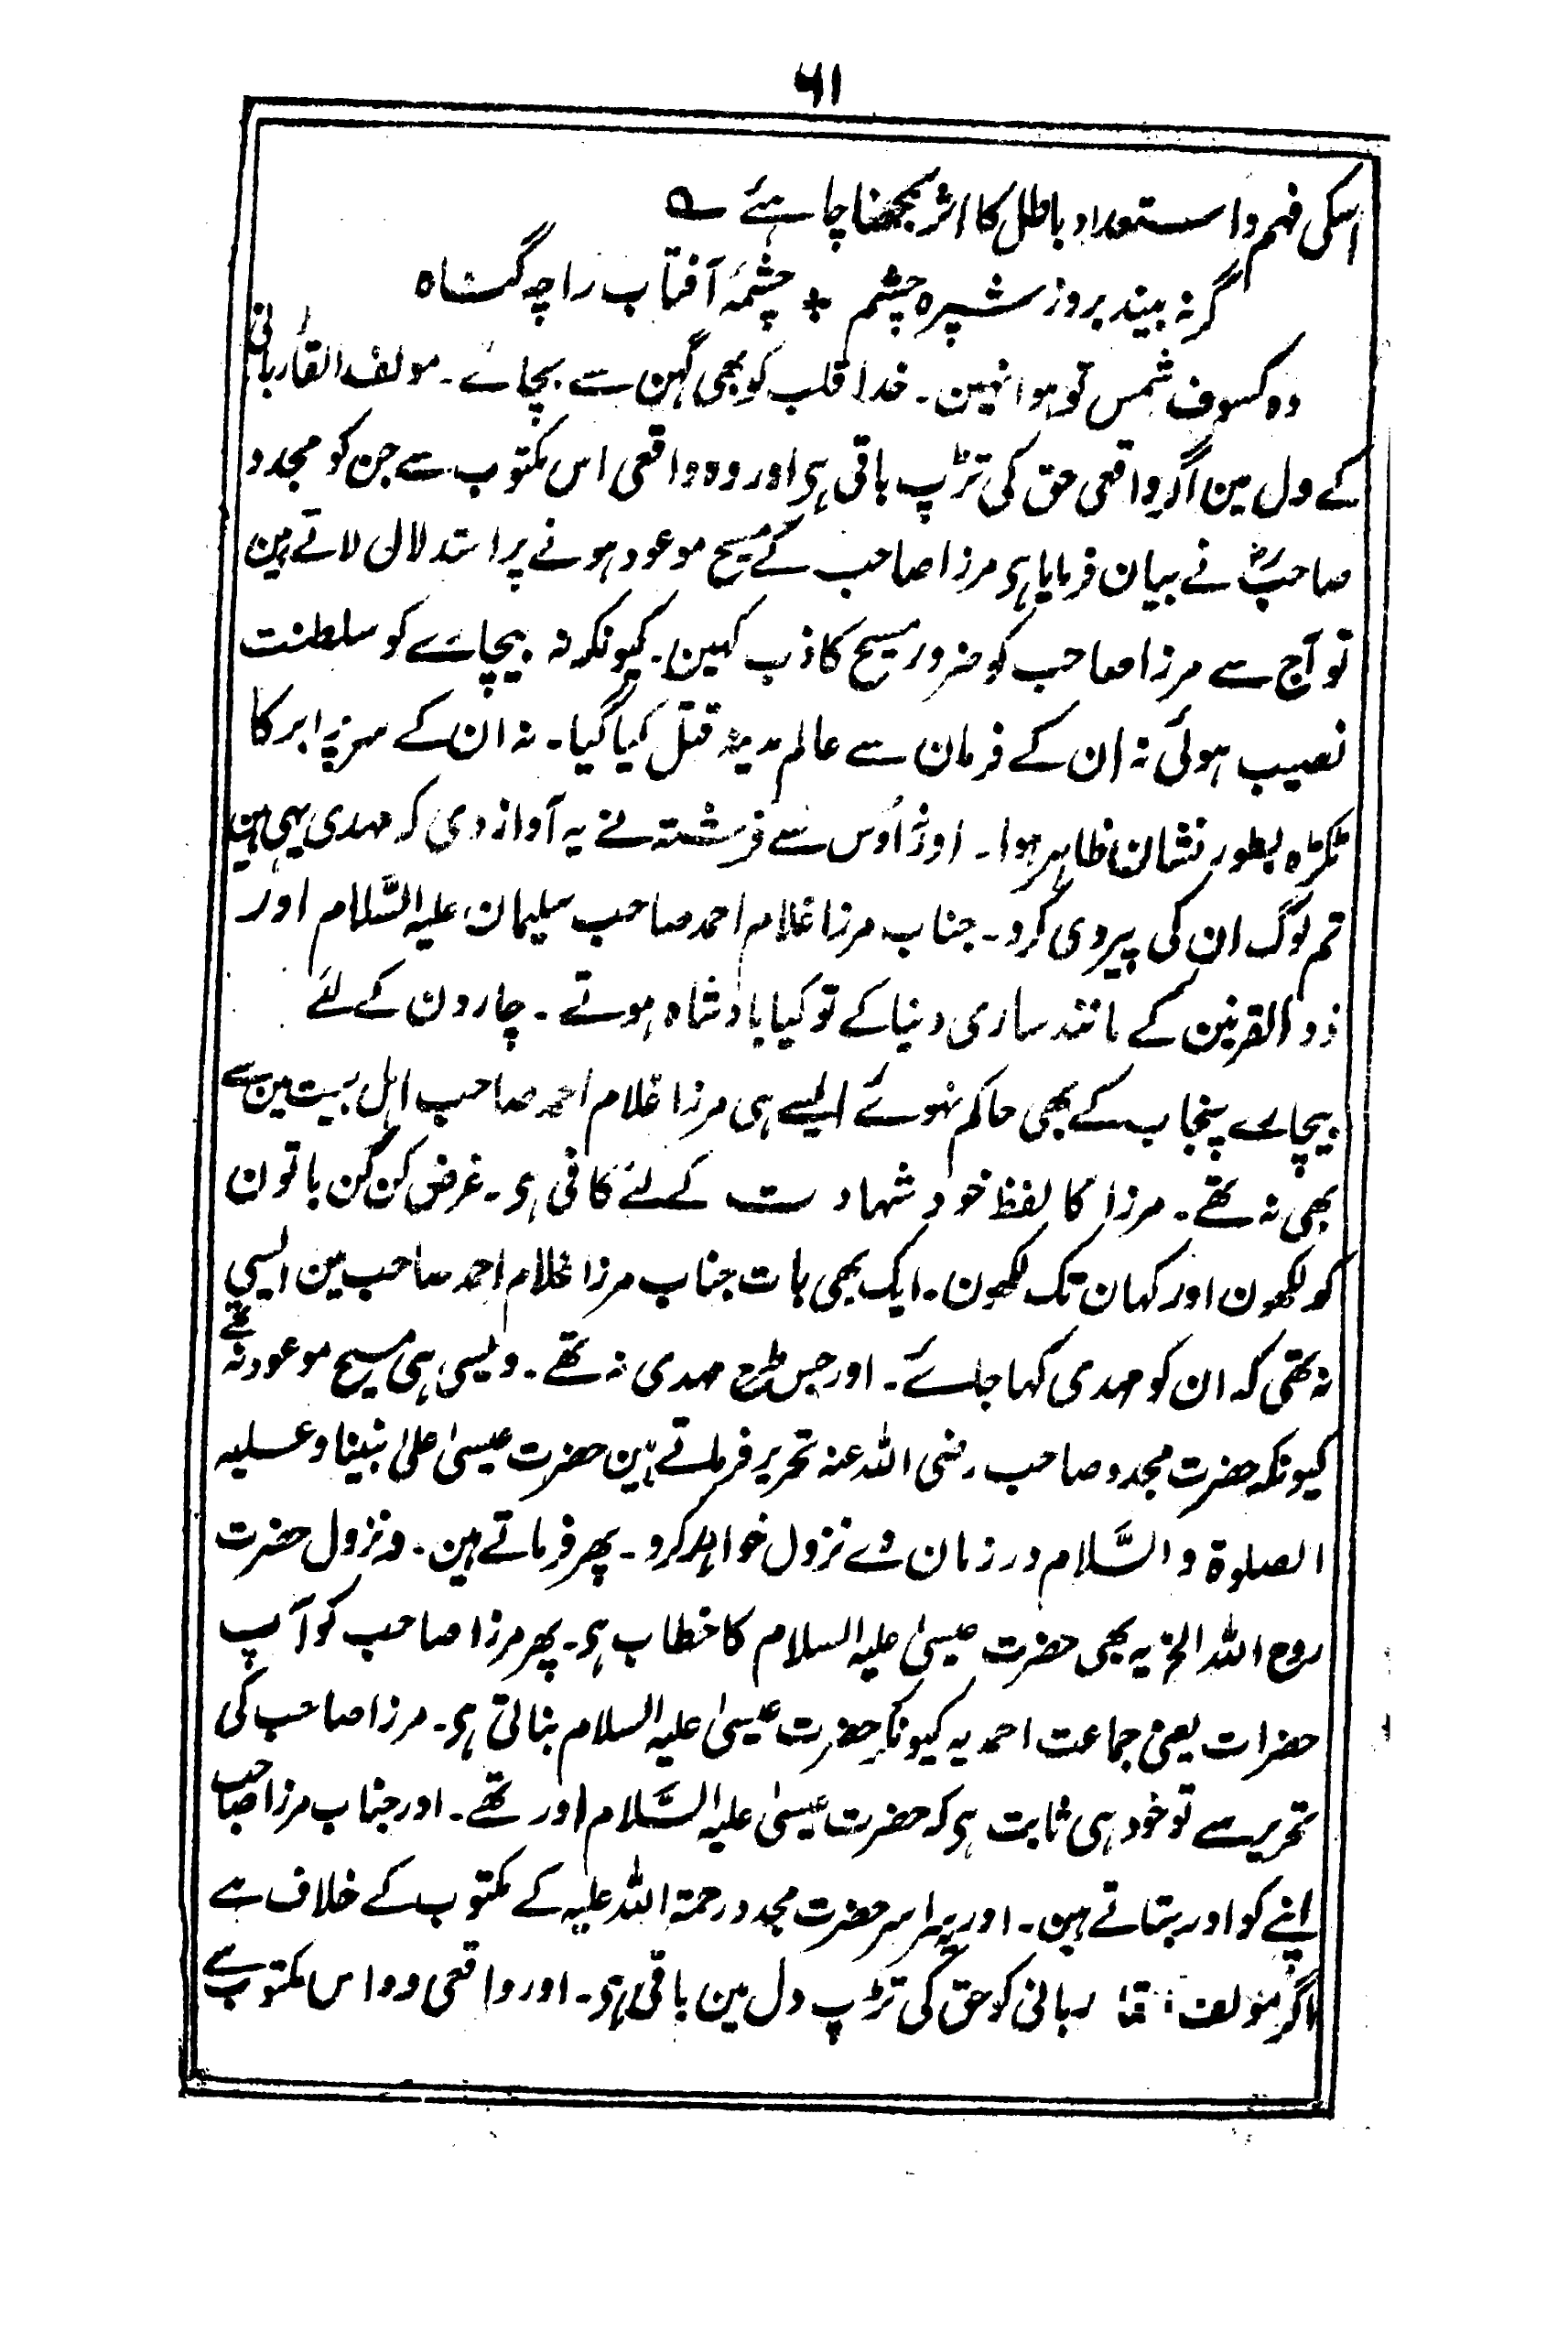 ۶۱
اسکی فہم و استعداد باطل کا اثر سمجھنا چاہئے ؎
گر نہ بیند بروز شپرہ چشم * چشمۂ آفتاب را چہ گناہ
وہ کسوف شمس تو ہوا نہین۔ خدا قلب کو بھی گہن سے بچائے۔ مولف القاء ربانی
کے دل مین اگر واقعی حق کی تڑپ باقی ہی اور وہ واقعی اس مکتوب سے جن کو مجدد
صاحبؒ نے بیان فرمایا ہی مرزا صاحب کے مسیح موعود ہونے پر استدلال لاتے ہین
تو آج سے مرزا صاحب کو ضرور مسیح کاذب کہین۔ کیونکہ نہ بیچارے کو سلطنت
نصیب ہوئی نہ ان کے فرمان سے عالم مدینہ قتل کیا گیا۔ نہ ان کے سر پر ابر کا
ٹکڑہ بطور نشان ظاہر ہوا۔ اور اوس سے فرشتہ نے یہ آواز دی کہ مہدی یہی ہین
تم لوگ ان کی پیروی کرو۔ جناب مرزا غلام احمد صاحب سلیمان علیہ السَّلام اور
ذو القرنین کے مانند ساری دنیا کے تو کیا بادشاہ ہوتے۔ چار دن کے لئے
بیچارے پنجاب کے بھی حاکم نہوئے ایسے ہی مرزا غلام احمد صاحب اہل بیت مین سے
بھی نہ تھے۔ مرزا کا لفظ خود شہادت کے لئے کافی ہی۔ غرض کن کن باتون
کو لکھون اور کہان تک لکھون۔ ایک بھی بات جناب مرزا غلام احمد صاحب مین ایسی
نہ تھی کہ ان کو مہدی کہا جائے۔ اور جس طرح مہدی نہ تھے۔ ویسی ہی مسیح موعود نہ تھے
کیونکہ حضرت مجدد صاحب رضی اللہ عنہ تحریر فرماتے ہین حضرت عیسیٰ علیٰ نبینا و علیہ
الصلوۃ والسَّلام در زمان وے نزول خواہد کرد۔ پھر فرماتے ہین۔ و نزول حضرت
روح اللہ الخ یہ بھی حضرت عیسیٰ علیہ السلام کا خطاب ہی۔ پھر مرزا صاحب کو آپ
حضرات یعنی جماعت احمدیہ کیونکر حضرت عیسیٰ علیہ السلام بناتی ہی۔ مرزا صاحب کی
تحریر سے تو خود ہی ثابت ہی کہ حضرت عیسیٰ علیہ السَّلام اور تھے۔ اور جناب مرزا صاحب
اپنے کو اور بتاتے ہین۔ اور یہ سراسر حضرت مجدد رحمۃ اللہ علیہ کے مکتوب کے خلاف ہے
اگر مولف القا ربانی کو حق کی تڑپ دل مین باقی ہی۔ اور واقعی وہ اس مکتوب سے